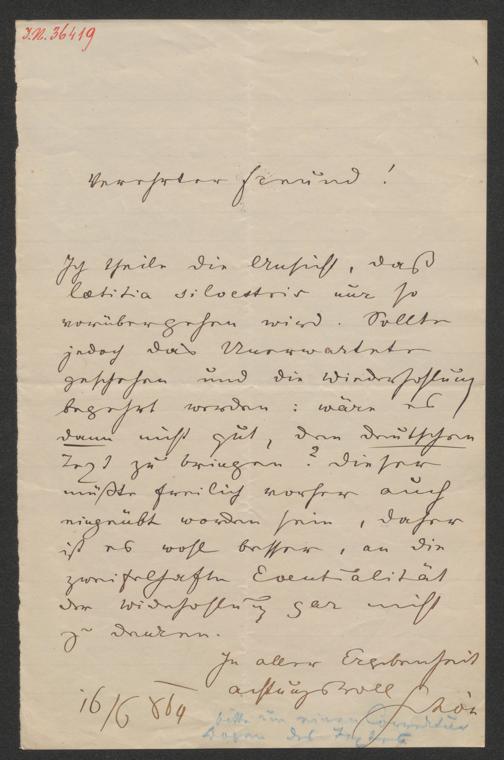 I.N. 36419
Verehrter Freund!
Ich theile die Ansicht, daß
laetitia silvestris nur so
vorübergehen wird. Sollte
jedoch das Unerwartete
geschehen und die Wiederholung
begehrt werden: wäre es
dann nicht gut, den deutschen
Text zu bringen? dieser
müßte freilich vorher auch
eingeübt worden sein, daher
ist es wohl besser, an die
zweifelhafte Eventualität
der Widerholung gar nicht
zu denken.
In aller Ergebenheit
achtungsvoll
16/6
bitte um einen Correctur
Bogen des